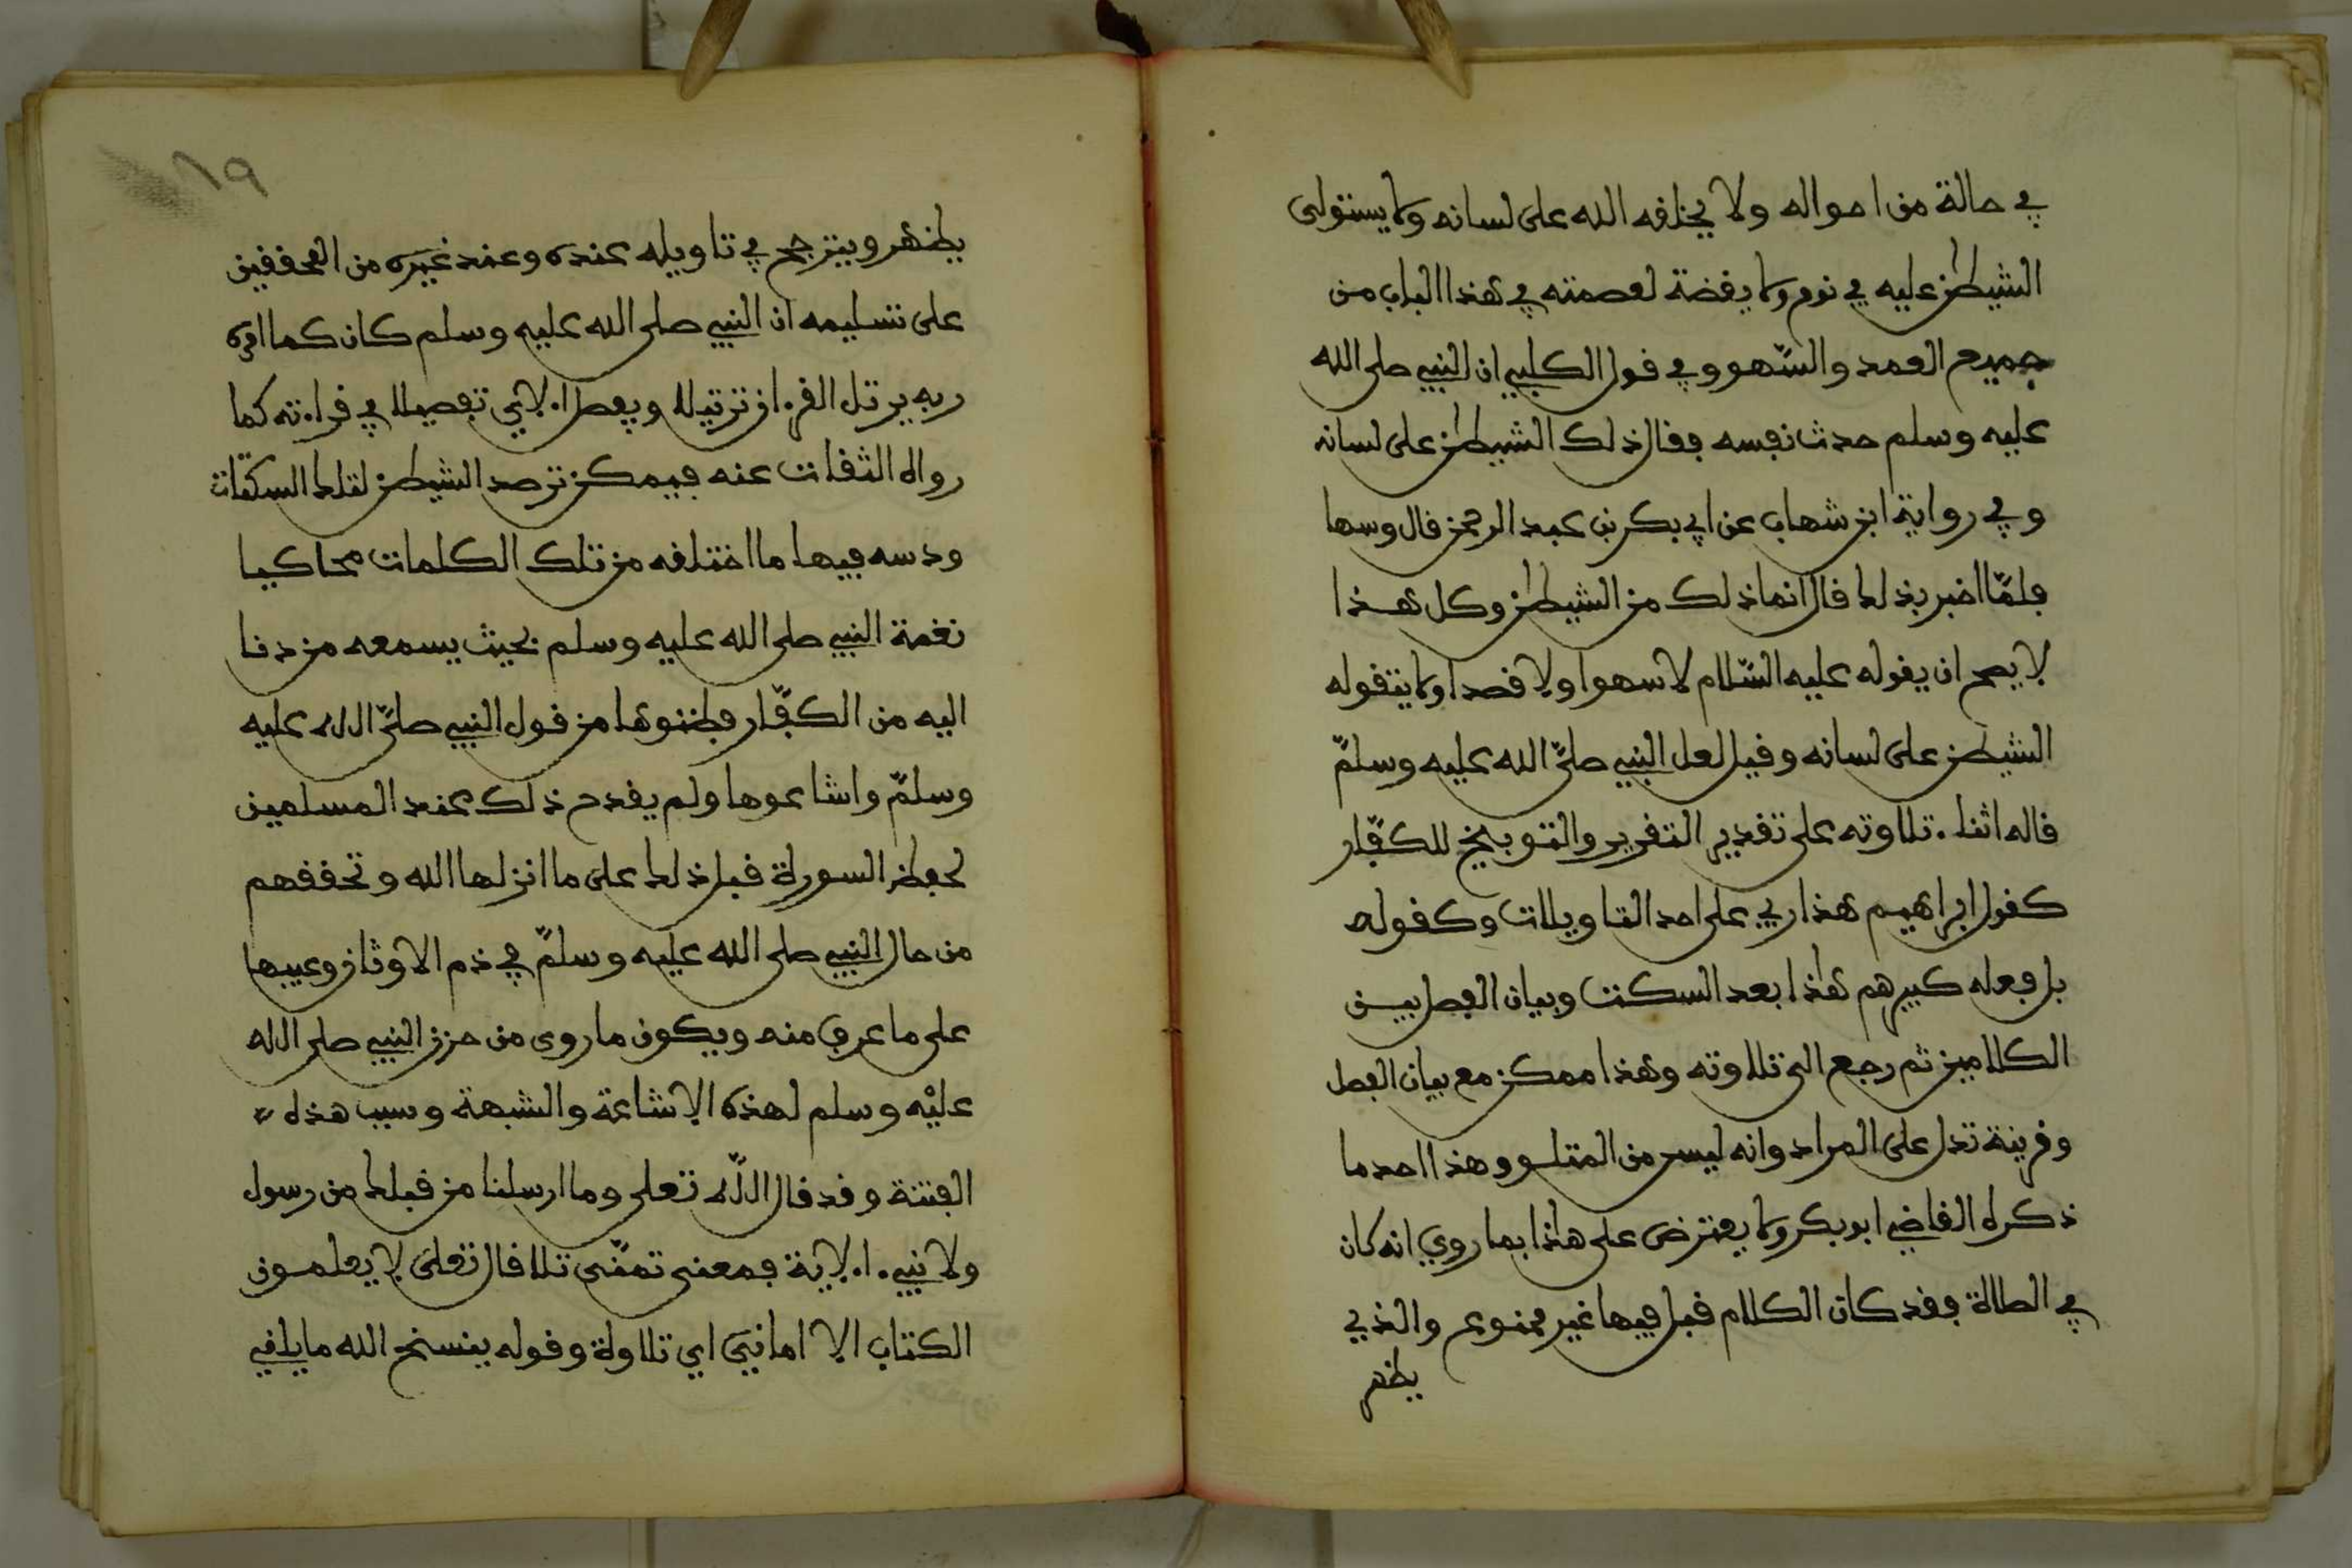 في حالة من احواله ولا يخلقه الله على لسانه ولا يستولى
الشيطن عليه في نوم ولا يقضة لعصمته في هذا الباب من
جميع العمد والسّهو وفي قول الكلبي ان النبي صلى الله
عليه وسلم حدث نفسه فقال ذلك الشيطن على لسانه
وفي رواية ابن شهاب عن ابي بكر بن عبد الرحمن قال وسها
فلمّا اخبر بذلك قال انما ذلك من الشيطن وكل هذا
لا يصح ان يقوله عليه السّلام لا سهوا ولا قصدا ولا يتقوله
الشيطن على لسانه وقيل لعل النبي صلىّ الله عليه وسلمّ
قاله اثناء تلاوته على تقدير التقرير والتوبيخ للكفّار
كقول ابراهيم هذا ربي على احد التاويلات وكقوله
بل فعله كبيرهم هذا بعد السكت وبيان الفصل بين
الكلامين ثم رجع الى تلاوته وهذا ممكن مع بيان الفصل
وقرينة تدل على المراد وانه ليس من المتلو وهذا احد ما
ذكره القاضي ابو بكر ولا يعترض على هذا بما روي انه كان
في الصلاة فقد كان الكلام قبل فيها غير ممنوع والذي
يظهر
١٩
يظهر ويترجح في تاويله عنده وعند غيره من المحققين
على تسليمه ان النبي صلى الله عليه وسلم كان كما امره
ربه يرتل القرءان ترتيلا ويفصل الآي تفصيلا في قراءته كما
رواه الثقات عنه فيمكن ترصد الشيطن لتلك السكتات
ودسه فيها ما اختلقه من تلك الكلمات محاكيا
نغمة النبي صلى الله عليه وسلم بحيث يسمعه من دنا
اليه من الكفّار فظنوها من قول النبي صلىّ الله عليه
وسلمّ واشاعوها ولم يقدح ذلك عند المسلمين
لحفظ السورة قبل ذلك على ما انزلها الله وتحققهم
من حال النبي صلى الله عليه وسلمّ في ذم الاوثان وعيبها
على ما عرف منه ويكون ما روى من حزن النبي صلى الله
عليْه وسلم لهذه الاشاعة والشبهة وسبب هذه
الفتنة وقد قال اللّه تعلى وما ارسلنا من قبلك من رسول
ولا نبيء الآية فمعنى تمنّى تلا قال تعلى لا يعلمون
الكتاب الا امانيّ اي تلاوة وقوله ينسخ الله ما يلقي